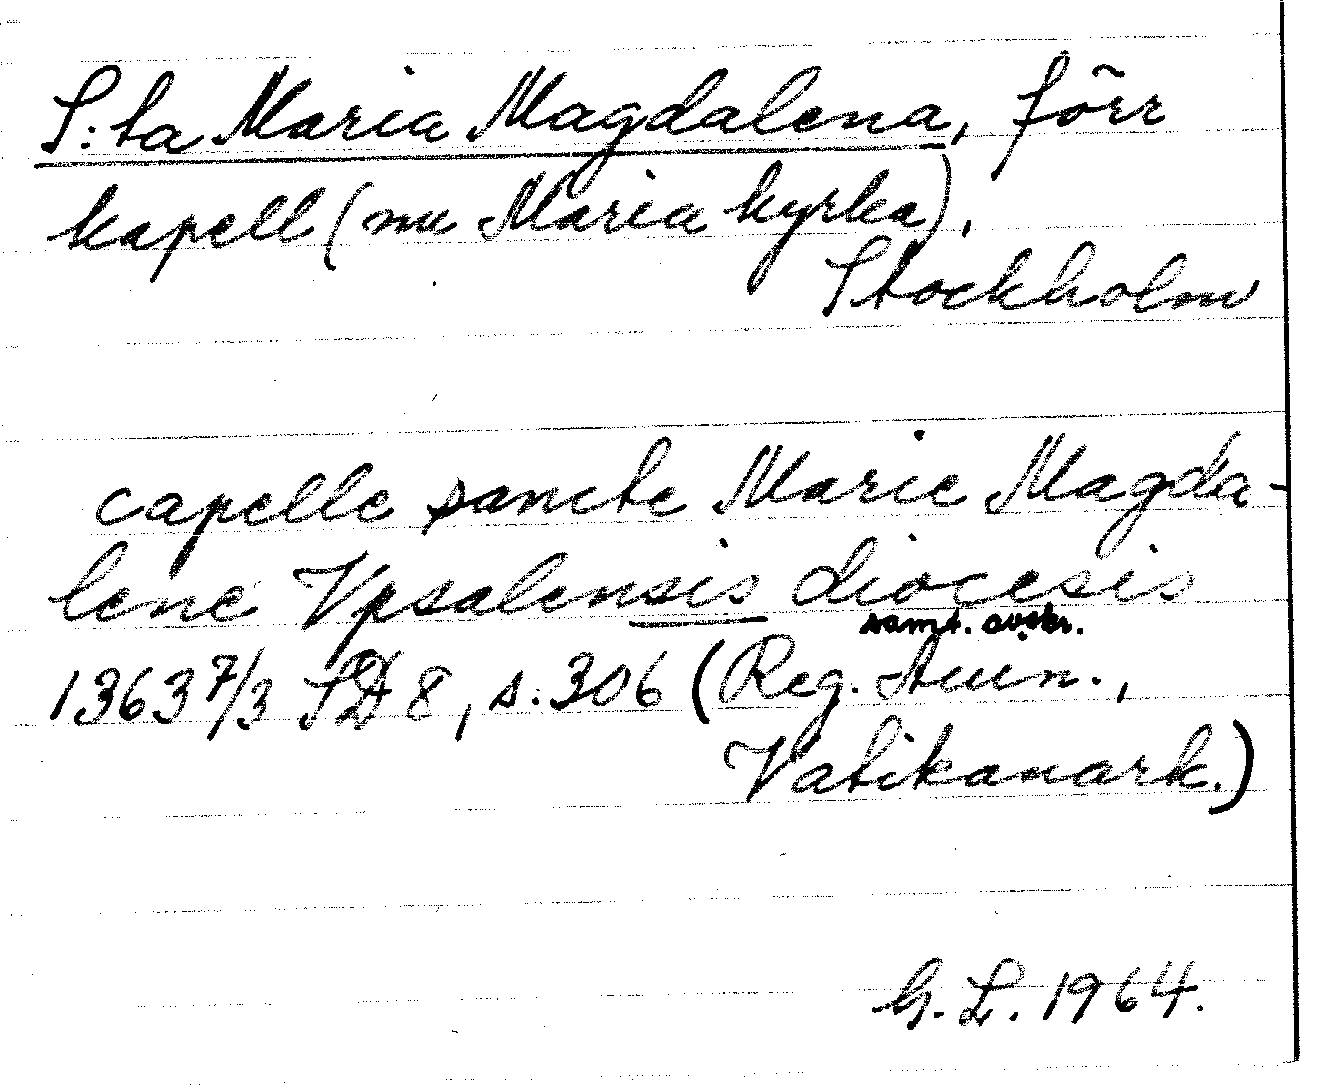 S:ta Maria Magdalena, förr
kapell (nu Maria kyrka),
Stockholm
capelle sancte Marie Magda-
lene Vpsalensis diocesis
samt. avskr.
1363 7/3 SD 8, s. 306 (Reg. Avin.,
Vatikanark.)
G. L. 1964.